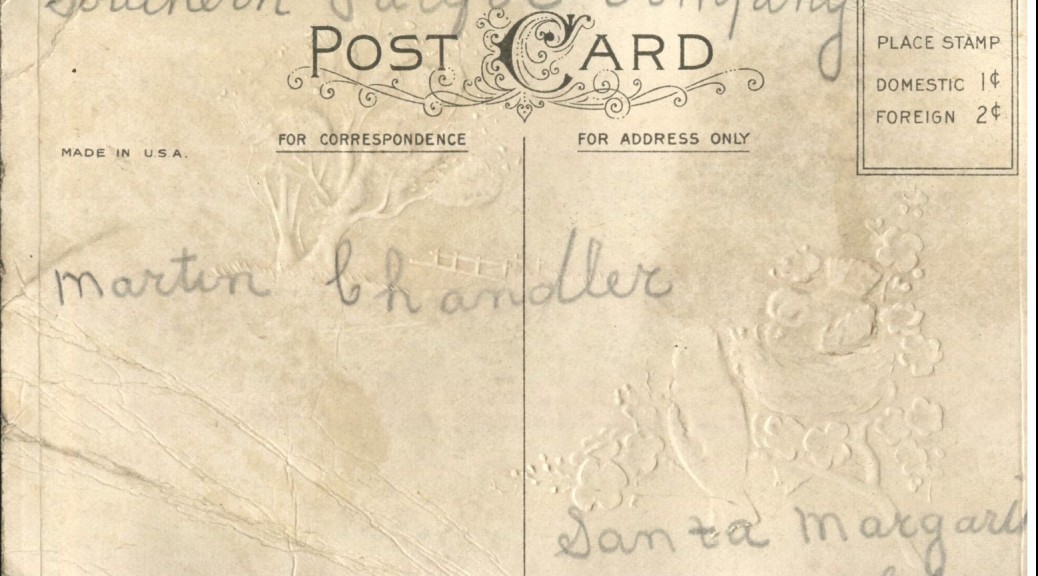 Southern Company
POST CARD
PLACE STAMP
DOMESTIC 1¢
FOREIGN 2¢
FOR CORRESPONDENCE
FOR ADDRESS ONLY
MADE IN U.S.A.
Martin Chandler
Santa Margari